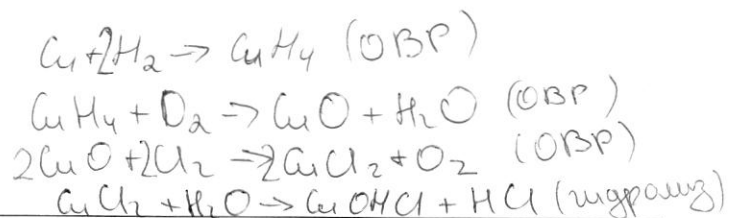 Cu+2H2 → CuH4 (ОВР)
CuH4 + O2 → CuO + H2O (ОВР)
2CuO + 2Cl2 → 2CuCl2 + O2 (ОВР)
CuCl2 + H2O → CuOHCl + HCl (гидролиз)